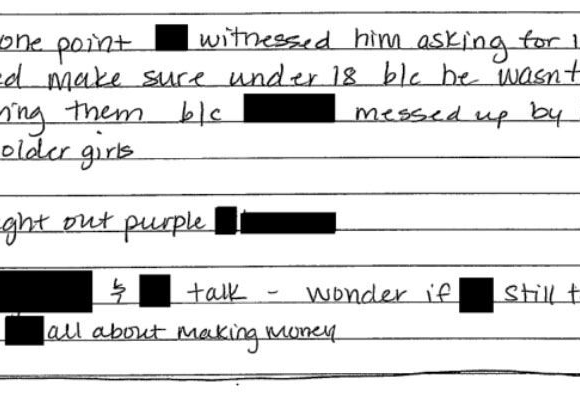 one point witnessed him asking for i
ed make sure under 18 b/c he wasnt
ning them b/c messed up by
older girls
ght out purple
& talk - wonder if still t
all about making money